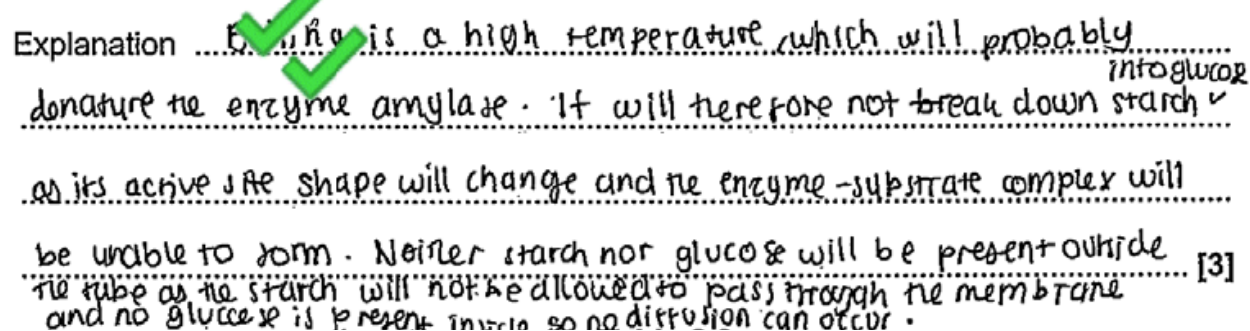 Explanation Boiling is a high temperature, which will probably
into glucose
denature the enzyme amylase. It will therefore not break down starch
as its active site shape will change and the enzyme-substrate complex will
be unable to form. Neither starch nor glucose will be present outside
[3]
the tube as the starch will not be allowed to pass through the membrane
and no glucose is present inside so no diffusion can occur.